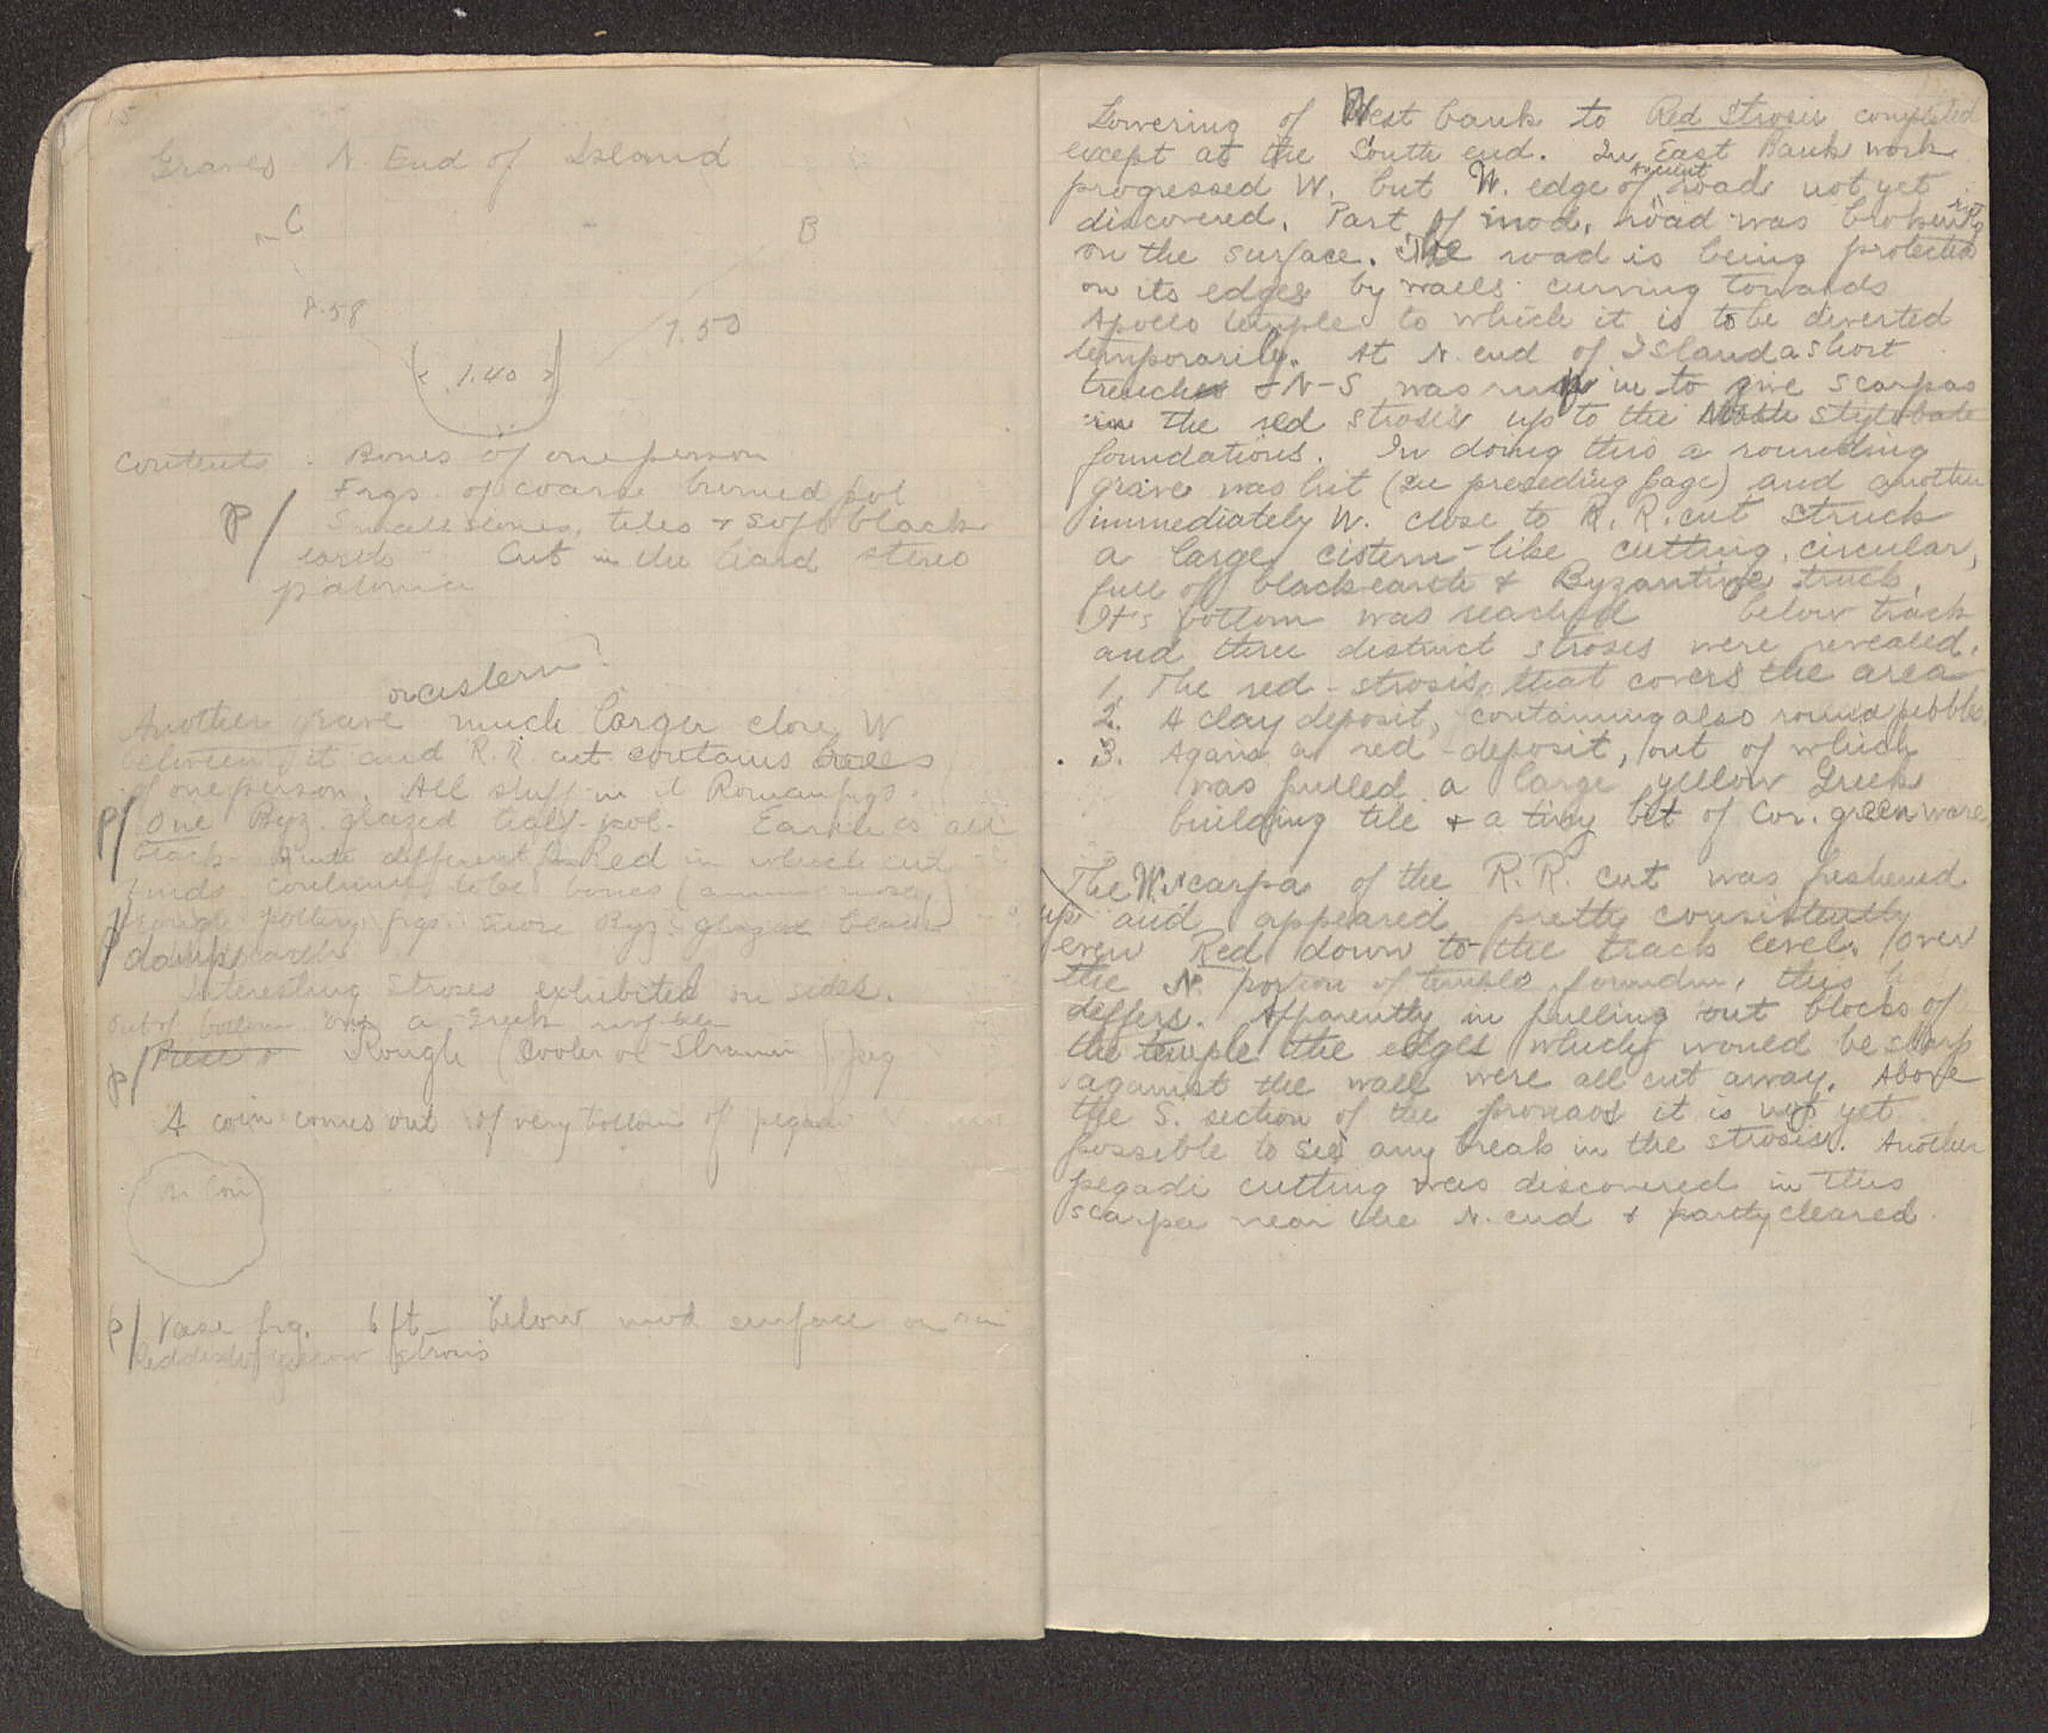 15
Graves N. End of Island
C
B
7.58
7.50
1.40
Contents : Bones of one person
P/ Frgs. of coarse burned pot
Small stones, tiles + soft black
earth - Cut in the hard stereo
or cistern?
Another grave much larger close W
between it and R.R. cut contains
of one person. All stuff in it Roman frgs.
P/ One Byz. glazed half-pot. Earth is all
black. Quite different from Red in which cut
Finds continue to be bones (
rough pottery frgs. more Byz. glazed black
P/ damp earth
Interesting stroses exhibited on sides.
out of bottom only a Greek
P/ Rough (Cooler or Strainer) frg
A coin comes out of very bottom of pegadi
Coin
P/ Vase frg. 6 ft. below mod surface on
Reddish yellow strosis
Lowering of West bank to Red Strosis completed
except at the South end. In East Bank work
progressed W. but W. edge of ancient road not yet
discovered. Part of mod. road was broken
on the surface. The road is being protected
on its edges by walls curving towards
Apollo temple to which it is to be diverted
temporarily. At N. end of Island a short
trench N-S was run in to give scarpas
in the red strosis up to the stylobate
foundations. In doing this a rounding
grave was hit (see preseding page) and another
immediately W. close to R.R. cut struck
a large cistern-like cutting, circular,
full of black earth + Byzantine truck.
It's bottom was reached below track
and three distinct stroses were revealed.
1. The red-strosis, that covers the area
2. A clay deposit, containing also round pebbles
3. Again a red-deposit, out of which
was pulled a large yellow Greek
building tile + a tiny bit of Cor. green ware.
The W. scarpa of the R.R. cut was freshened
up and appeared pretty consistently
even Red down to the track level. Over
the N. portion of temple foundn. this
differs. Apparently in pulling out blocks of
the temple the edges which would be sharp
against the wall were all cut away. Above
the S. section of the pronaos it is not yet
possible to see any break in the strosis. Another
pegadi cutting was discovered in this
scarpa near the N. end + partly cleared.